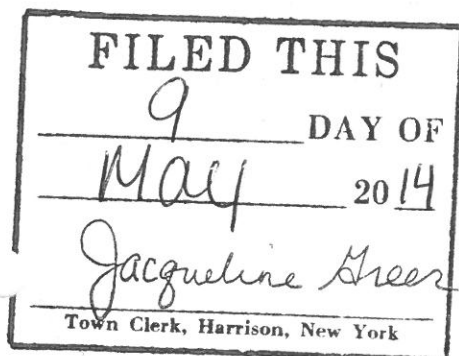 FILED THIS
9 DAY OF
May 2014
Jacqueline Greer
Town Clerk, Harrison, New York